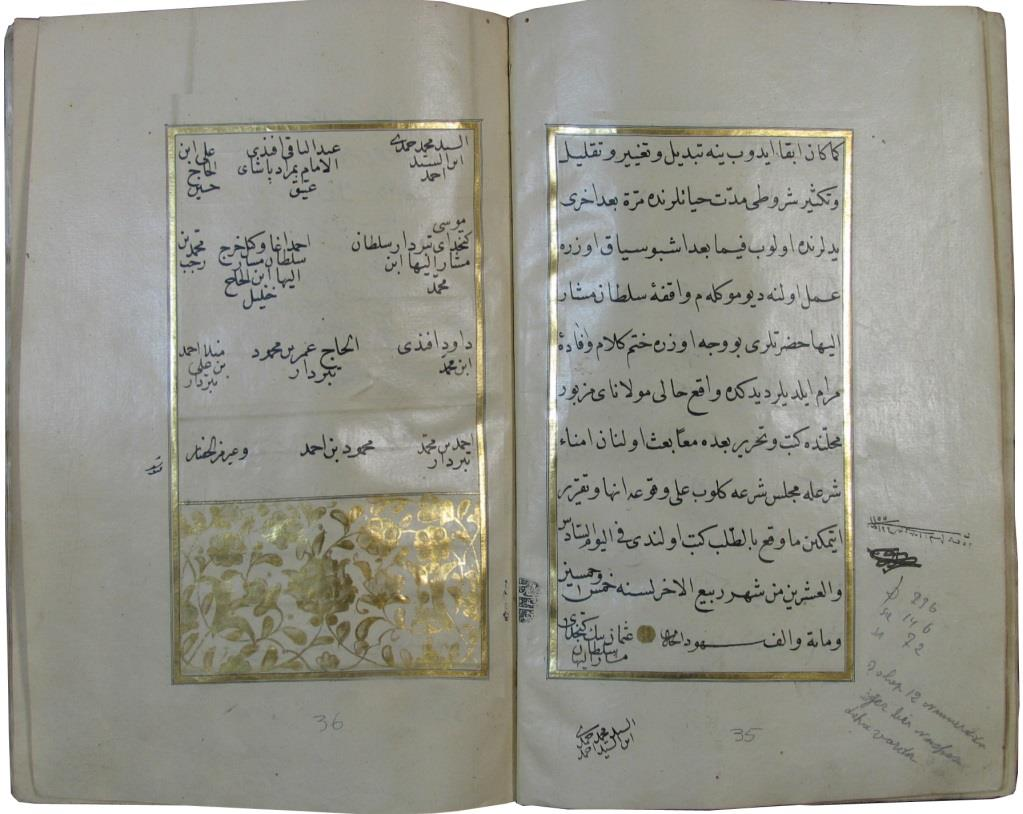 كماكان ابقا ايدوب ينه تبديل وتغيير وتقليل
وتكثير شروطى مدت حياتلرنده مرة بعد اخرى
يدلرنده اولوب فيما بعد اشبو سياق اوزره
عمل اولنه ديو موكلهٔ م واقفهٔ سلطان مشار
اليها حضرتلرى بو وجه اوزره ختم كلام وفادهٔ
مرام ايلديلر ديدكده واقع حالى مولاناى مزبور
محلنده كتب وتحرير بعده معا بعث اولنان امناء
شرعله مجلس شرعه كلوب على وقوعه انها وتقرير
ايتمكين ما وقع بالطلب كتب اولندى فى اليوم السادس
والعشرين من شهر ربيع الاخر لسنه خمس وخمسين
ومائة والف
عثمان بك كتخداى
سلطان
مشار اليها
السيد محمد حمدى
ابن السيد احمد
35
896
146
72
السيد محمد حمدى
ابن السيد
احمد
عبد الباقى افندى
الامام بمراد پاشاى
عتيق
على ابن
الحاج
حسين
موسى
كتخداى تبردار سلطان
مشار اليها ابن
محمد
احمد اغا وكيلخرج
سلطان مشار
اليها ابن الحاج
خليل
محمد بن
رجب
داود افندى
ابن محمد
الحاج عمر بن محمود
تبردار
منلا احمد
بن على
تبردار
احمد بن محمد
تبردار
محمود بن احمد
وغيرهم من الحضار
36